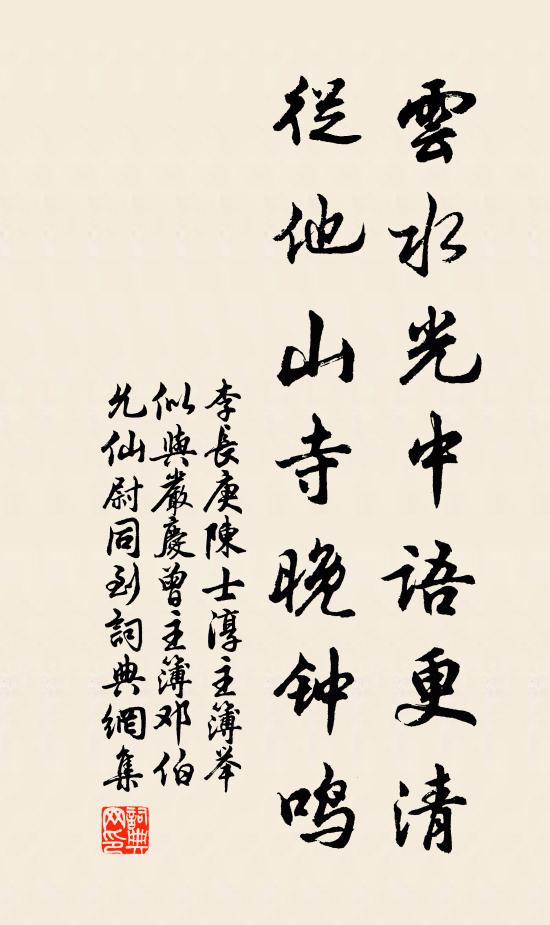 雲水光中語更清
從他山寺晚钟鸣
李長庚陳士淳主簿举
似與嚴慶曾主簿邓伯
允仙尉同到詞典網集
詞典
网